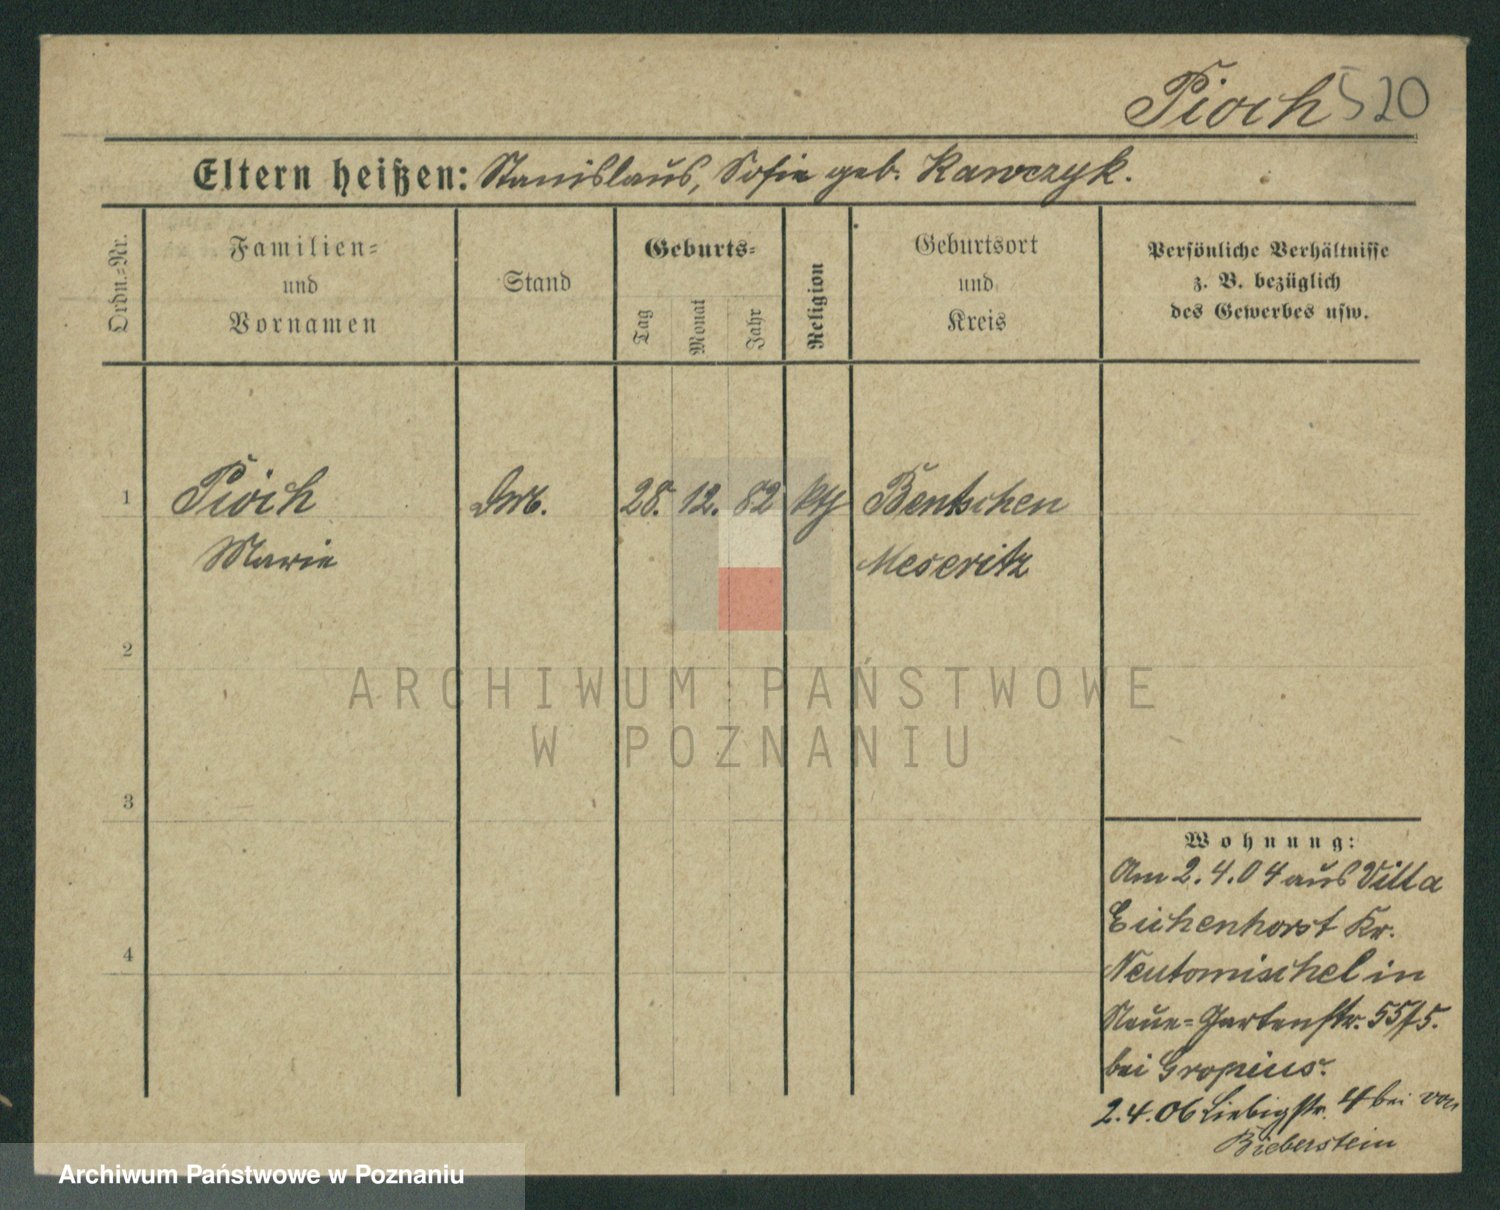 Pioch 520
Eltern heißen: Stanislaus, Sofie geb. Kawczyk.
Ordn.=Nr.
Familien=
und
Vornamen
Stand
Geburts=
Tag
Monat
Jahr
Religion
Geburtsort
und
Kreis
Persönliche Verhältnisse
z. B. bezüglich
des Gewerbes usw.
1 Pioch 28. 12. 82 kth Bentschen
Marie Meseritz
2
3
4
Wohnung:
Am 2.4.04 aus Villa
Eichenhorst Kr.
Neutomischel in
Neue=Gartenstr. 55
bei Gropius.
2.4.06 Liebigstr. 4 bei von
Bieberstein
ARCHIWUM PAŃSTWOWE
W POZNANIU
Archiwum Państwowe w Poznaniu